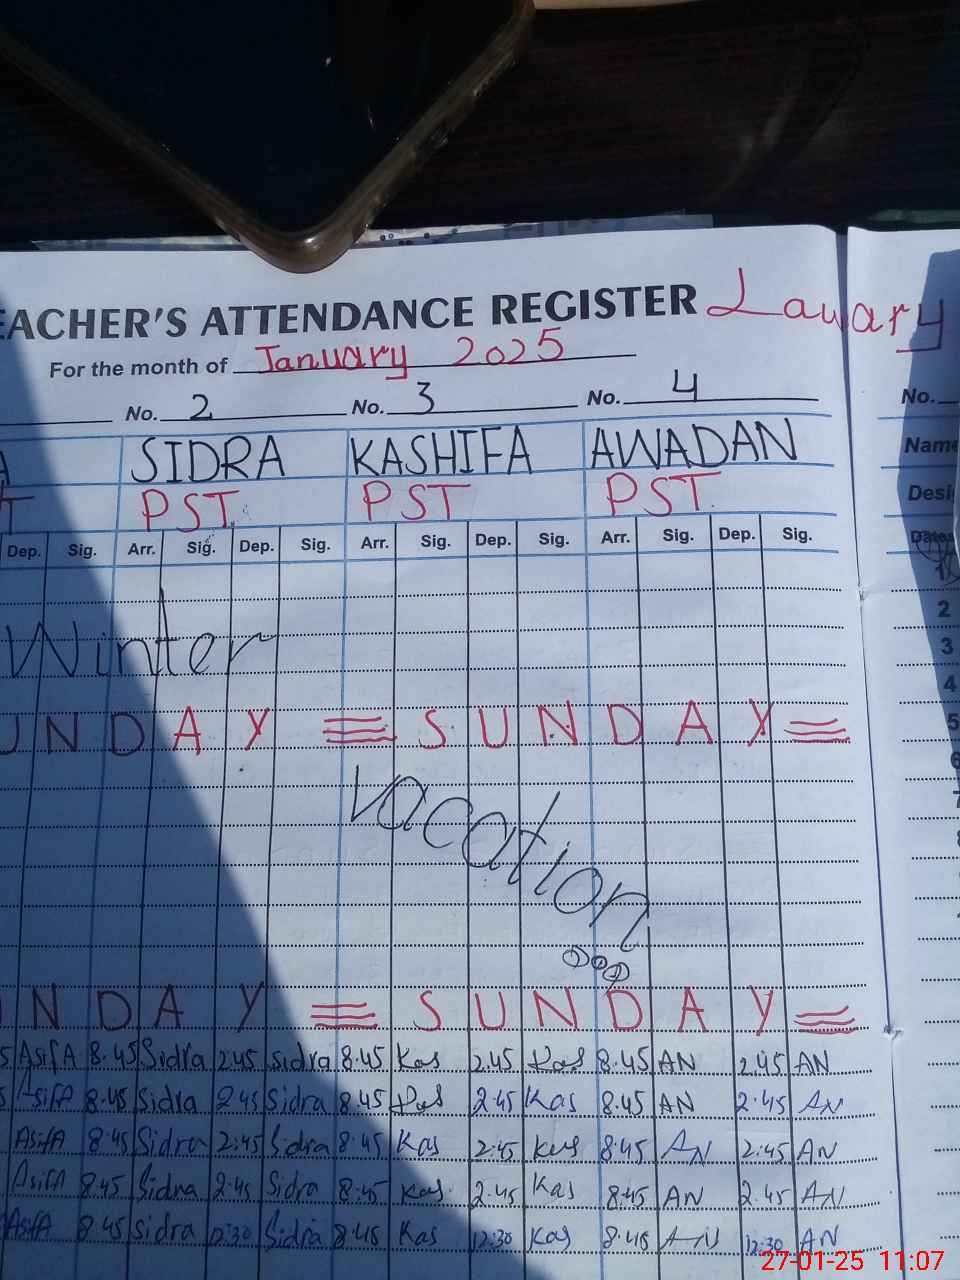 EACHER'S ATTENDANCE REGISTER
For the month of January 2025
No. 2 No. 3 No. 4 No.
A SIDRA KASHIFA AWADAN Name
T PST PST PST Desi
Dep. Sig. Arr. Sig. Dep. Sig. Arr. Sig. Dep. Sig. Arr. Sig. Dep. Sig. Dates
1
2
Winter 3
4
UNDAY = SUNDAY = 5
6
7
vacation
NDAY = SUNDAY =
5 AsifA 8.45 Sidra 2.45 Sidra 8.45 Kas 2.45 Kas 8.45 AN 2.45 AN
5 AsifA 8.45 Sidra 2.45 Sidra 8.45 Kas 2.45 Kas 8.45 AN 2.45 AN
AsifA 8.45 Sidra 2:45 Sidra 8.45 Kas 2.45 Kas 8.45 AN 2.45 AN
AsifA 8.45 Sidra 2.45 Sidra 8.45 Kas 2.45 Kas 8.45 AN 2.45 AN
AsifA 8.45 Sidra 12:30 Sidra 8.45 Kas 12:30 Kas 8.45 AN 12:30 AN
27-01-25 11:07